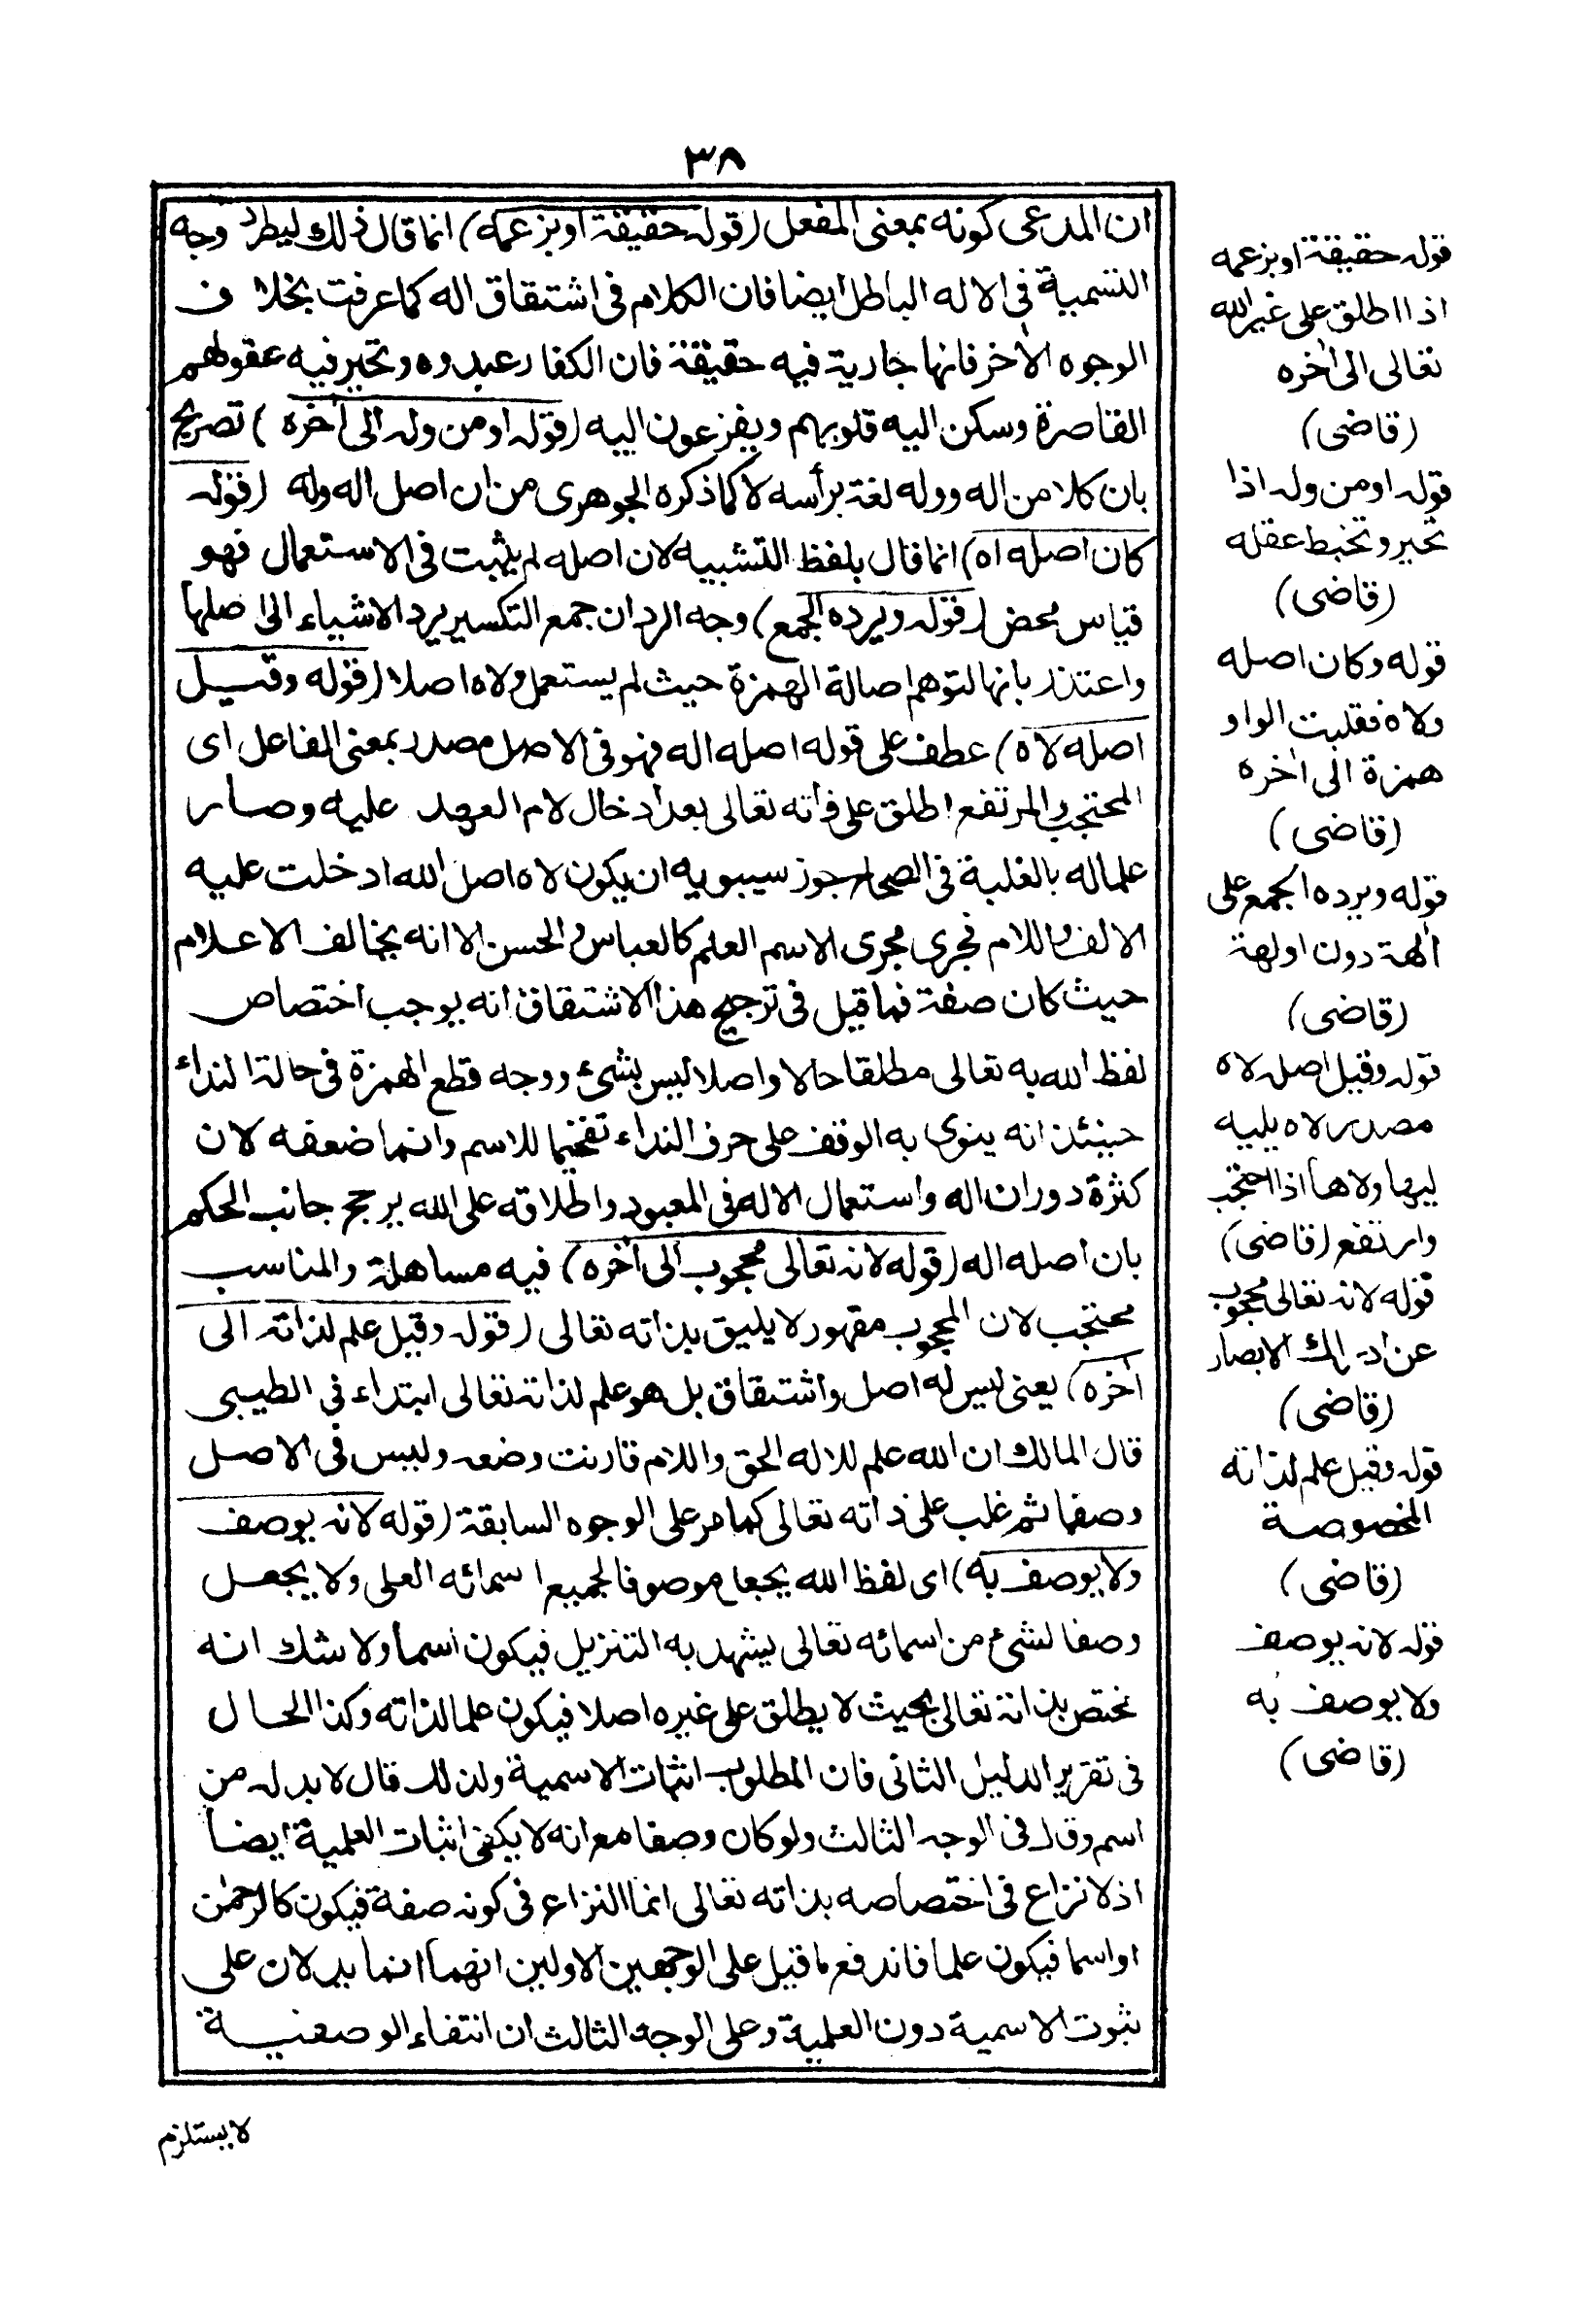 ٣٨
ان المدعى كونه بمعنى المفعل (قوله حقيقة او بزعمه) انما قال ذلك ليطرد وجه
التسمية فى الاله الباطل ايضا فان الكلام فى اشتقاق اله كما عرفت بخلاف
الوجوه الاخر فانها جارية فيه حقيقة فان الكفار عبدوه وتحير فيه عقولهم
القاصرة وسكن اليه قلوبهم ويفزعون اليه (قوله او من وله الى اخره) تصريح
بان كلا من اله ووله لغة برأسه لا كما ذكره الجوهرى من ان اصل اله وله (قوله
كان اصله اه) انما قال بلفظ التشبيه لان اصله لم يثبت فى الاستعمال فهو
قياس محض (قوله ويرده الجمع) وجه الرد ان جمع التكسير يرد الاشياء الى اصلها
واعتذر بانها لتوهم اصالة الهمزة حيث لم يستعمل ولاه اصلا (قوله وقيل
اصله لاه) عطف على قوله اصله اله فهو فى الاصل مصدر بمعنى الفاعل اى
المحتجب والمرتفع اطلق على ذاته تعالى بعد ادخال لام العهد عليه وصار
علما له بالغلبة فى الصحاح جوز سيبويه ان يكون لاه اصل الله ادخلت عليه
الالف واللام فجرى مجرى الاسم العلم كالعباس والحسن الا انه يخالف الاعلام
حيث كان صفة فما قيل فى ترجيح هذا الاشتقاق انه يوجب اختصاص
لفظ الله به تعالى مطلقا حالا واصلا ليس بشئ ووجه قطع الهمزة فى حالة النداء
حينئذ انه ينوى به الوقف على حرف النداء تفخيما للاسم وانما ضعفه لان
كثرة دوران اله واستعمال الاله فى المعبود واطلاقه على الله يرجح جانب الحكم
بان اصله اله (قوله لانه تعالى محجوب الى اخره) فيه مساهلة والمناسب
محتجب لان المحجوب مقهور لا يليق بذاته تعالى (قوله وقيل علم لذاته الى
اخره) يعنى ليس له اصل واشتقاق بل هو علم لذاته تعالى ابتداء فى الطيبى
قال المالك ان الله علم للاله الحق واللام قارنت وضعه وليس فى الاصل
وصفا ثم غلب على ذاته تعالى كما مر على الوجوه السابقة (قوله لانه يوصف
ولا يوصف به) اى لفظ الله يجعل موصوفا لجميع اسمائه العلى ولا يجعل
وصفا لشئ من اسمائه تعالى يشهد به التنزيل فيكون اسما ولا شك انه
مختص بذاته تعالى بحيث لا يطلق على غيره اصلا فيكون علما لذاته وكذا الحال
فى تقرير الدليل الثانى فان المطلوب اثبات الاسمية ولذلك قال لا بد له من
اسم وقال فى الوجه الثالث ولو كان وصفا مع انه لا يكفى اثبات العلمية ايضا
اذ لا نزاع فى اختصاصه بذاته تعالى انما النزاع فى كونه صفة فيكون كالرحمن
او اسما فيكون علما فاندفع ما قيل على الوجهين الاولين انهما انما يدلان على
ثبوت الاسمية دون العلمية وعلى الوجه الثالث ان انتفاء الوصفية
لا يستلزم
قوله حقيقة او بزعمه
اذا اطلق على غير الله
تعالى الى اخره
(قاضى)
قوله او من وله اذا
تحير وتخبط عقله
(قاضى)
قوله وكان اصله
ولاه فقلبت الواو
همزة الى اخره
(قاضى)
قوله ويرده الجمع على
الهة دون اولهة
(قاضى)
قوله وقيل اصله لاه
مصدر لاه يليه
ليها ولاها اذا احتجب
وارتفع (قاضى)
قوله لانه تعالى محجوب
عن ادراك الابصار
(قاضى)
قوله وقيل علم لذاته
المخصوصة
(قاضى)
قوله لانه يوصف
ولا يوصف به
(قاضى)